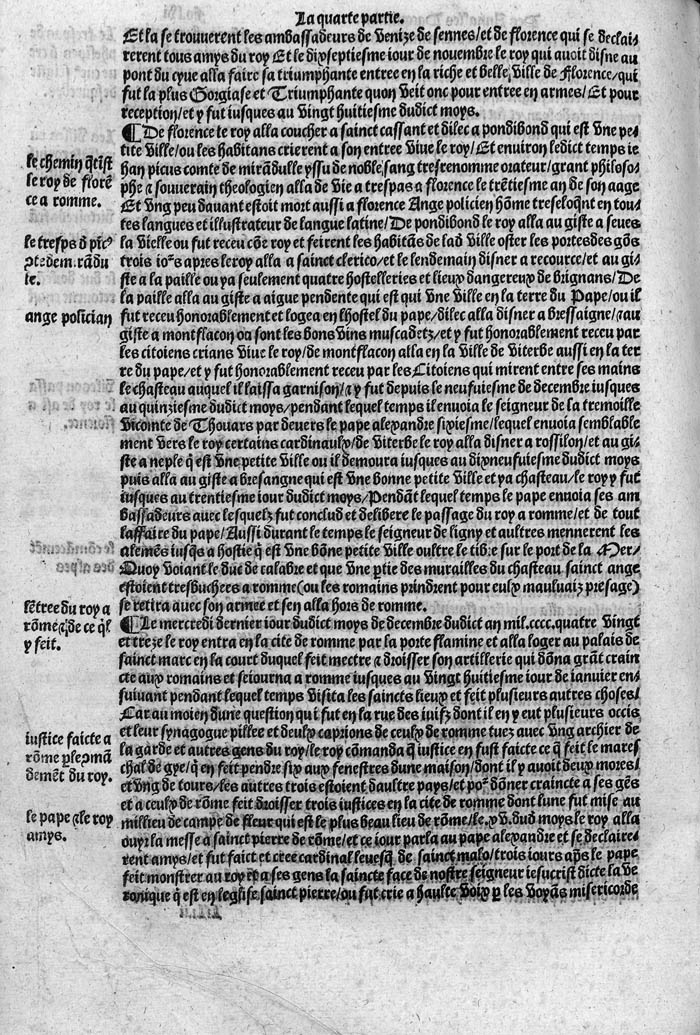 La quarte partie.
Et la se trouuerent les ambassadeurs de Venize de sennes/et de florence qui se declai⸗
rerent tous amys du roy Et le dixseptiesme iour de nouembre le roy qui auoit disne au
pont du cyne alla faire sa triumphante entree en la riche et belle Ville de Florence/qui
fut la plus Gorgiase et Triumphante quon Veit onc pour entree en armes/Et pour
reception/et y fut iusques au Vingt huitiesme dudict moys.
¶De florence le roy alla coucher a sainct cassant et dilec a pondibond qui est Vne pe⸗
tite Ville/ou les habitans crierent a son entree Viue le roy/Et enuiron ledict temps ie
han picus comte de mirādulle yssu de noble sang tresrenomme orateur/grant philoso⸗
phe ⁊ souuerain theologien alla de Vie a trespas a florence le trētiesme an de son aage
Et Vng peu dauant estoit mort aussi a florence Ange policien hōme treseloqnt en tou⸗
tes langues et illustrateur de langue latine/De pondibond le roy alla au giste a seues
la Vielle ou fut receu cōe roy et feirent les habitās de lad Ville oster les portes des gōs
trois iors apres le roy alla a sainct clerico/et le lendemain disner a recource/et au gi⸗
ste a la paille ou ya seulement quatre hostelleries et lieux dangereux de brignans/De
la paille alla au giste a aigue pendente qui est qui Vne Ville en la terre du Pape/ou il
fut receu honorablement et logea en lhostel du pape/dilec alla disner a bressaigne/⁊au
giste a montflacon ou sont les bons Vins muscadetz/et y fut honorablement receu par
les citoiens crians Viue le roy/de montflacon alla en la Ville de Viterbe aussi en la ter
re du pape/et y fut honorablement receu par les Citoiens qui mirent entre ses mains
le chasteau auquel il laissa garnison/⁊ y fut depuis le neufuiesme de decembre iusques
au quinziesme dudict moys/pendant lequel temps il enuoia le seigneur de la tremoille
Vicomte de Thouars par deuers le pape alexandre sixiesme/lequel enuoia semblable
ment Vers le roy certains cardinaulx/de Viterbe le roy alla disner a rossilon/et au gi⸗
ste a neple q̄ est Vne petite Ville ou il demoura iusques au dixneufuiesme dudict moys
puis alla au giste a bresangne qui est Vne bonne petite Ville et ya chasteau/le roy y fut
iusques au trentiesme iour dudict moys/Pendāt lequel temps le pape enuoia ses am
bassadeurs auec lesquelz fut conclud et delibere le passage du roy a romme/et de tout
laffaire du pape/Aussi durant le temps le seigneur de ligny et aultres mennerent les
alemēs iusqs a hostie q̄ est Vne bōne petite Ville oultre le tibre sur le port de la Mer/
Quoy Voiant le duc de calabre et que Vne ꝑtie des murailles du chasteau sainct ange
estoient tresbuchees a romme(ou les romains prindrent pour eulx mauluaiz presage)
se retira auec son armee et sen alla hors de romme.
¶Le mercredi dernier iour dudict moys de decembre dudict an mil.cccc.quatre Vingt
et treze le roy entra en la cite de romme par la porte flamine et alla loger au palais de
sainct marc en la court duquel feit mectre ⁊ droisser son artillerie qui dōna grāt crain
cte aux romains et seiourna a romme iusques au Vingt huitiesme iour de ianuier en⸗
suiuant pendant lequel temps Visita les saincts lieux et feit plusieurs autres choses/
Car au moien dune question qui fut en la rue des iuifz dont il en y eut plusieurs occis
et leur synagogue pillee et deulx caprions de ceulx de romme tuez auec Vng archier de
la garde et autres gens du roy/le roy cōmanda q̄ iustice en fust faicte ce q̄ feit le mares
chal de gye/q̄ en feit pendre six aux fenestres dune maison/dont il y auoit deux mores/
et Vng de tours/les autres trois estoient daultre pays/et por dōner craincte a ses gēs
et a ceulx de rōme feit droisser trois iustices en la cite de romme dont lune fut mise au
millieu de campe de fleur qui est le plus beau lieu de rōme/le.xv.dud moys le roy alla
ouyr la messe a sainct pierre de rōme/et ce iour parla au pape alexandre et se declaire⸗
rent amys/et fut faict et cree cardinal leuesq̄ de sainct malo/trois iours aps le pape
feit monstrer au roy ⁊ a ses gens la saincte face de nostre seigneur iesucrist dicte la Ve
ronique q̄ est en leglise sainct pierre/ou fut crie a haulte Voix ꝑ les Voyās misericorde
le chemin q̄ tīst
le roy de florē
ce a romme.
le tresps d̄ pic9
cōte de mirādu
le.
ange polician
lētree du roy a
rōme ⁊ de ce ql̄
y feit.
iustice faicte a
rōme ꝑ le cōmā
demēt du roy.
le pape ⁊ le roy
amys.